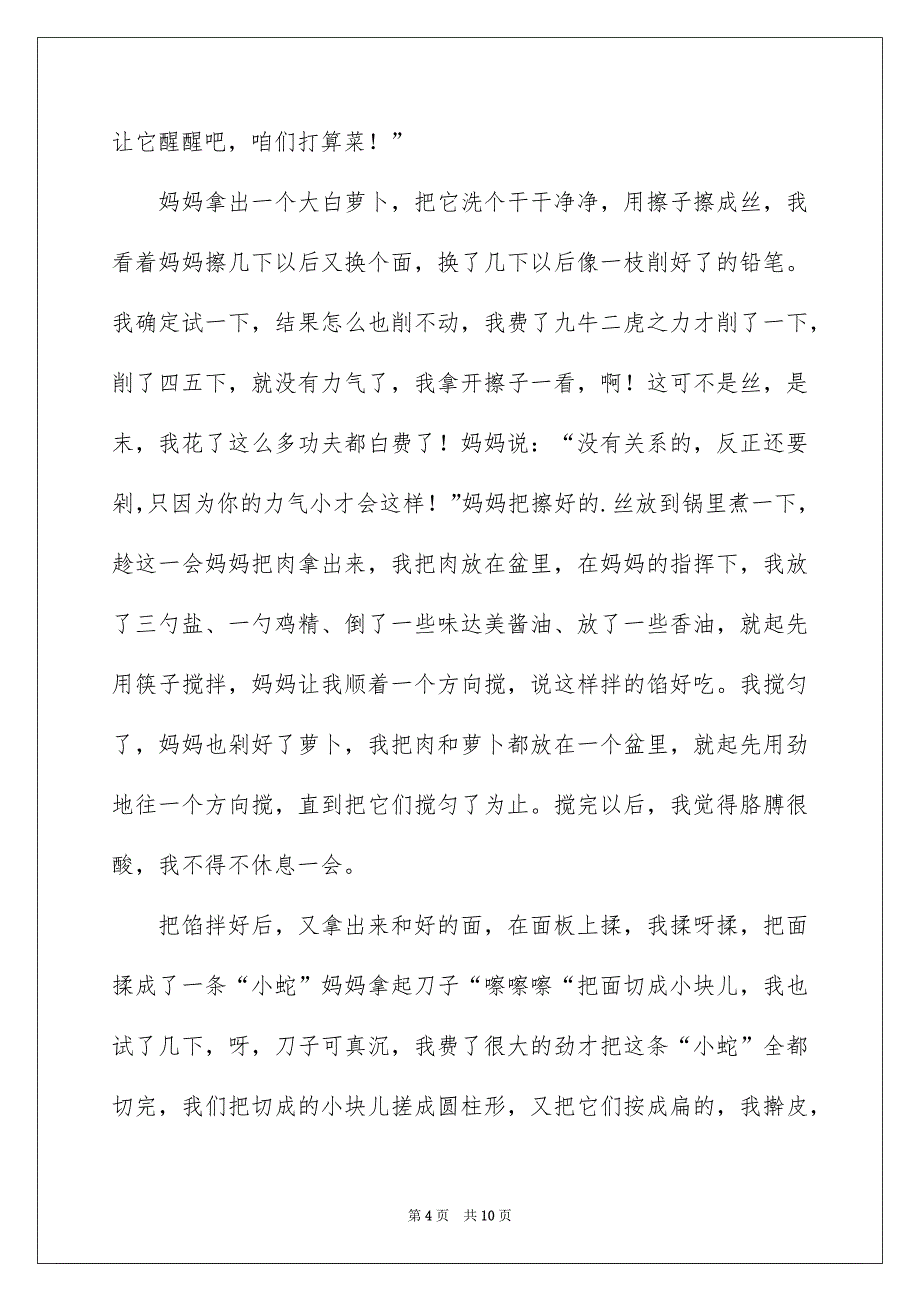 让它醒醒吧，咱们打算菜！”
妈妈拿出一个大白萝卜，把它洗个干干净净，用擦子擦成丝，我
看着妈妈擦几下以后又换个面，换了几下以后像一枝削好了的铅笔。
我确定试一下，结果怎么也削不动，我费了九牛二虎之力才削了一下，
削了四五下，就没有力气了，我拿开擦子一看，啊！这可不是丝，是
末，我花了这么多功夫都白费了！妈妈说：“没有关系的，反正还要
剁，只因为你的力气小才会这样！”妈妈把擦好的.丝放到锅里煮一下，
趁这一会妈妈把肉拿出来，我把肉放在盆里，在妈妈的指挥下，我放
了三勺盐、一勺鸡精、倒了一些味达美酱油、放了一些香油，就起先
用筷子搅拌，妈妈让我顺着一个方向搅，说这样拌的馅好吃。我搅匀
了，妈妈也剁好了萝卜，我把肉和萝卜都放在一个盆里，就起先用劲
地往一个方向搅，直到把它们搅匀了为止。搅完以后，我觉得胳膊很
酸，我不得不休息一会。
把馅拌好后，又拿出来和好的面，在面板上揉，我揉呀揉，把面
揉成了一条“小蛇”妈妈拿起刀子“嚓嚓嚓“把面切成小块儿，我也
试了几下，呀，刀子可真沉，我费了很大的劲才把这条“小蛇”全都
切完，我们把切成的小块儿搓成圆柱形，又把它们按成扁的，我擀皮，
第 4 页 共 10 页